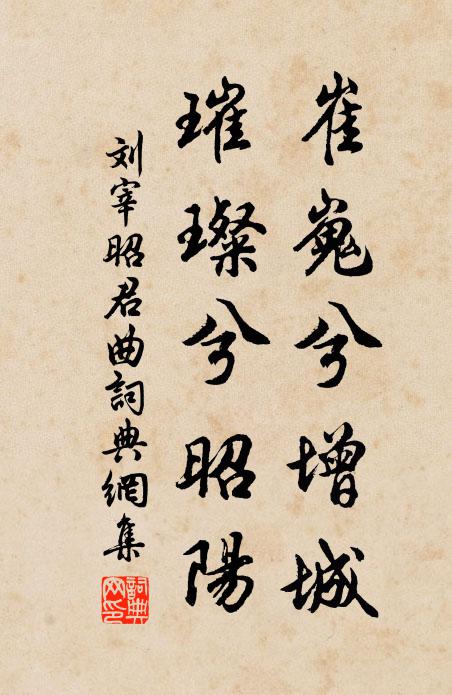 崔嵬兮增城
璀璨兮昭陽
刘宰昭君曲詞典網集
詞典网印